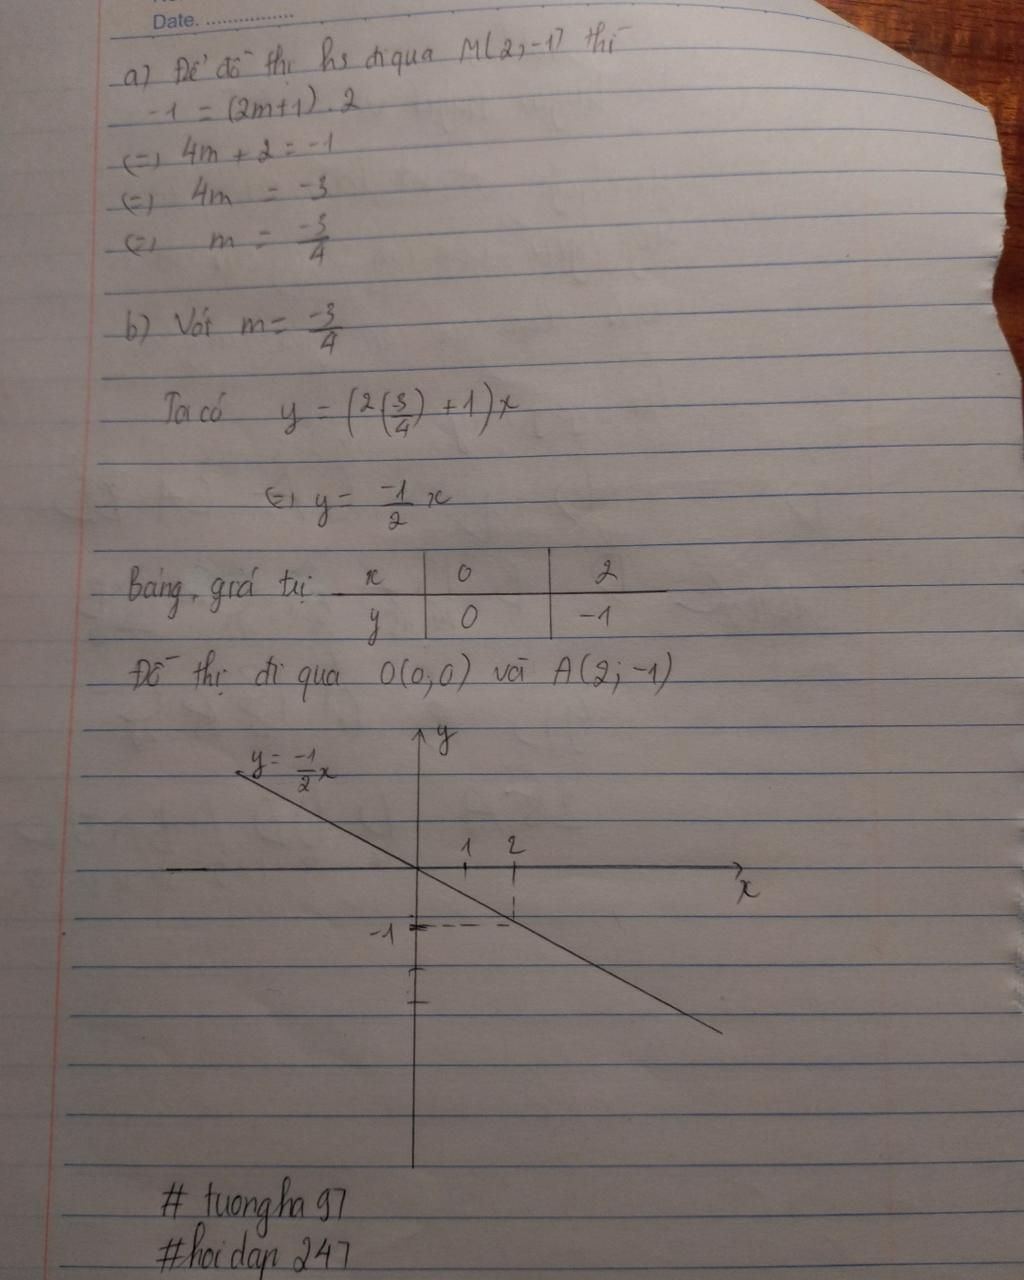 Date. ................
a) Để đồ thị hs đi qua M(2;-1) thì
-1 = (2m+1).2
(=) 4m + 2 = -1
(=) 4m = -3
(=) m = -3/4
b) Với m = -3/4
Ta có y = (2(3/4) + 1)x
(=) y = -1/2 x
Bảng giá trị x 0 2
y 0 -1
Đồ thị đi qua O(0;0) và A(2;-1)
y
y = -1/2 x
1 2
x
-1
# tuongha97
#hoidap 247